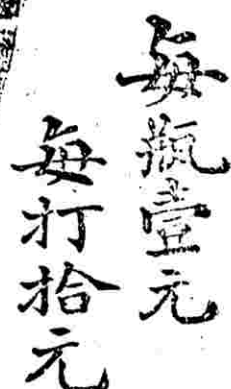 每瓶壹元
每打拾元